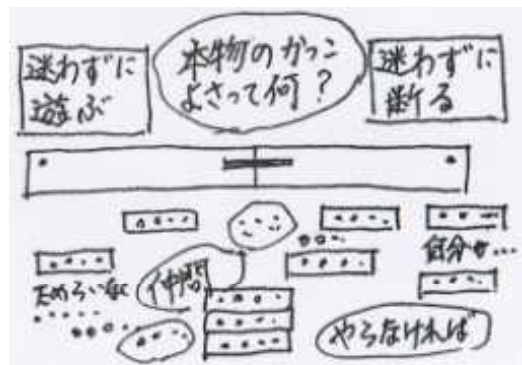 迷わずに
遊ぶ
本物のかっこ
よさって何?
迷わずに
断る
自分が…
ためらいなく
仲間
やらなければ